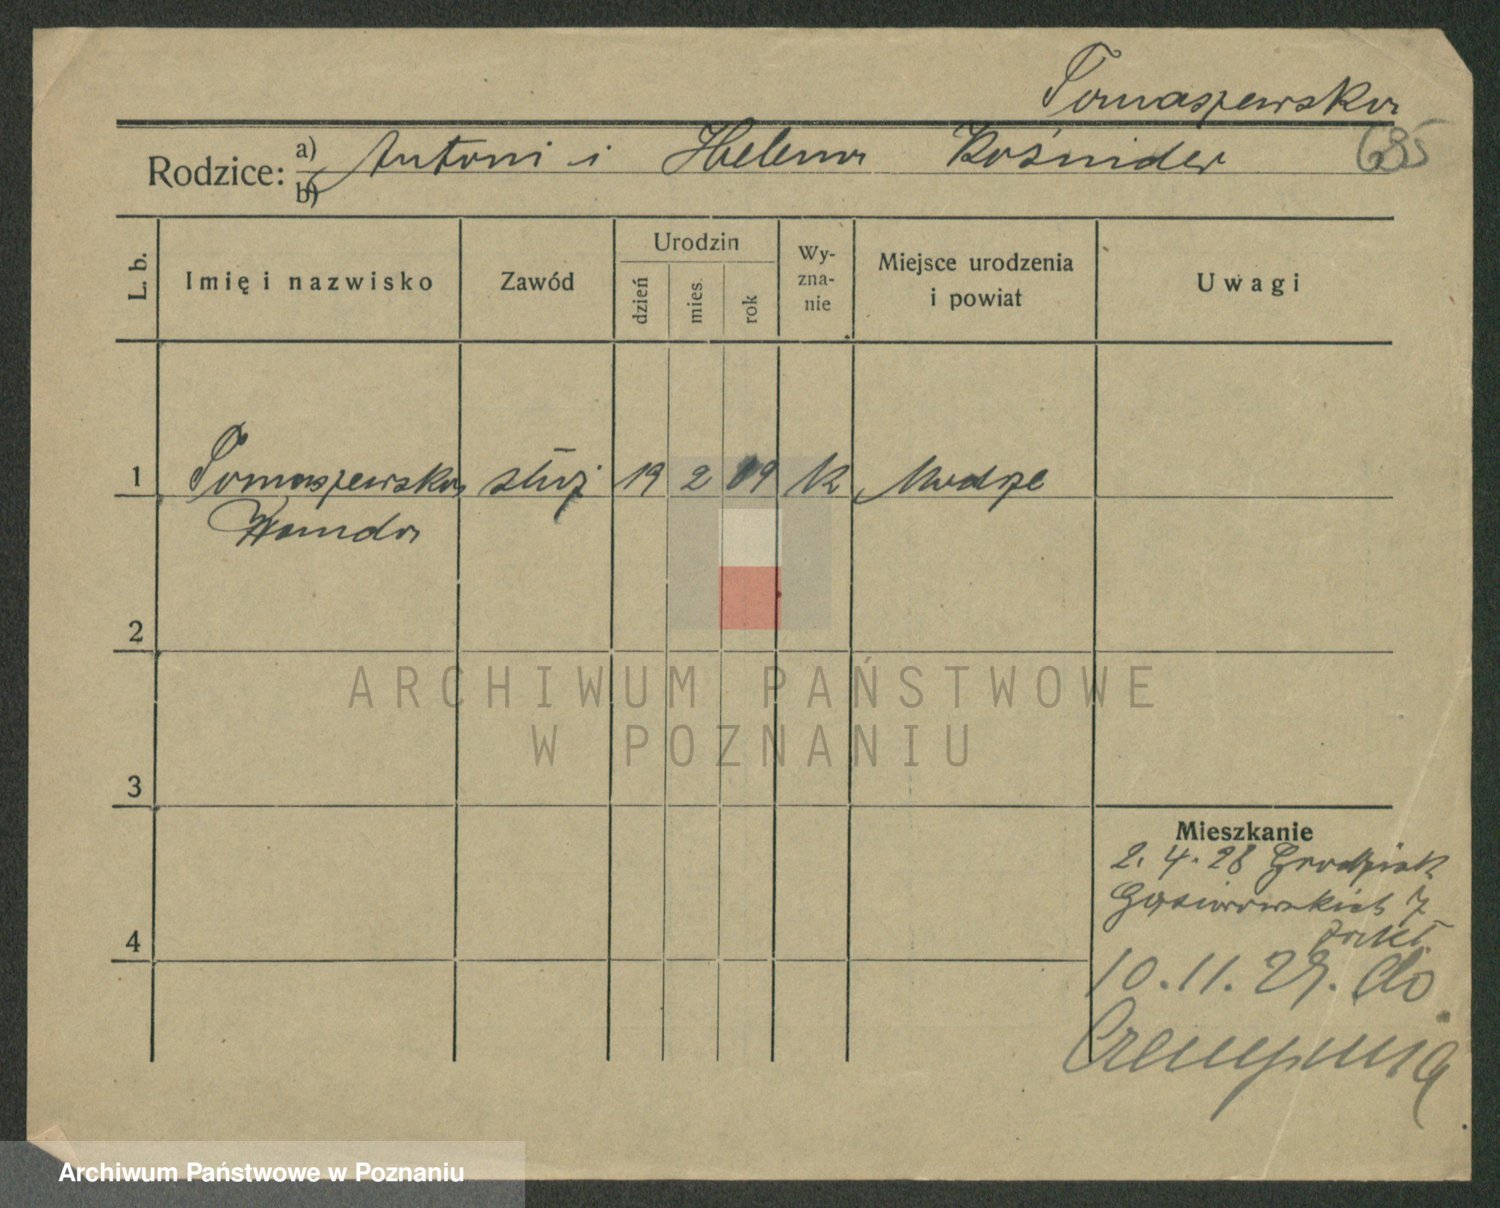 Tomaszewska
Rodzice: a) Antoni i Helena Kośnider 685
b)
L. b. Imię i nazwisko Zawód Urodzin dzień mies. rok Wy-zna-nie Miejsce urodzenia i powiat Uwagi
1 Tomaszewska służ 19 2 09 K Modrze
Wanda
2
ARCHIWUM PAŃSTWOWE
W POZNANIU
3
Mieszkanie
2. 4. 28 Grodzisk
Gąsiorowskich 7
4
10. 11. 29. do
Czempinia
Archiwum Państwowe w Poznaniu